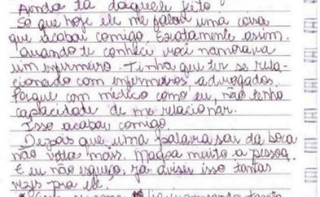 Ainda tá daquele jeito
Só que hoje ele me falou uma coisa
que acabou comigo. Exatamente assim.
"Quando te conheci você namorava
um enfermeiro. Tinha que ter se rela-
cionado com enfermeiros advogados.
Porque com médico como eu, não tenho
capacidade de me relacionar.
Isso acabou comigo
Depois que uma palavra sai da boca
não volta mais. Magoa muito a pessoa.
E eu não esqueço. Já disse isso tantas
vezes pra ele.